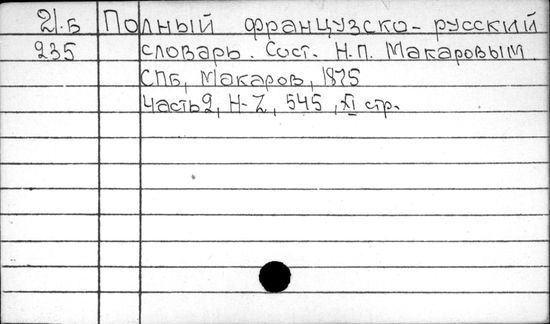 21.Б Полный французско-русский
235 словарь. Сост. Н.П. Макаровым.
СПБ, Макаров, 1875
Часть 2, H-Z, 545, XI стр.